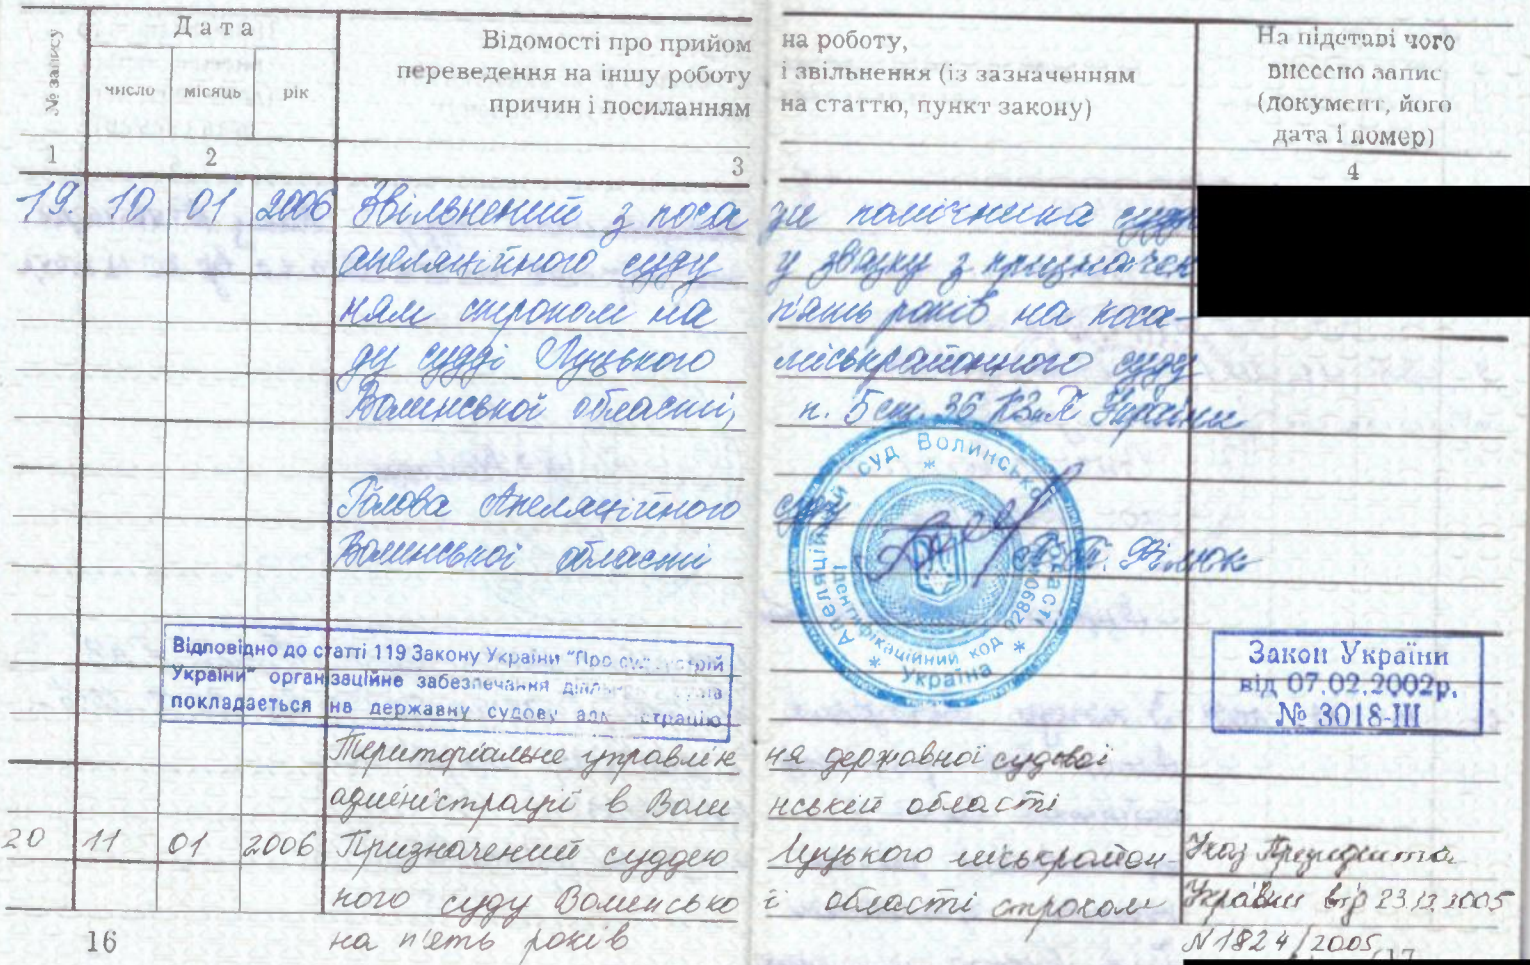 № запису
Дата
число місяць рік
Відомості про прийом на роботу,
переведення на іншу роботу і звільнення (із зазначенням
причин і посиланням на статтю, пункт закону)
На підставі чого
внесено запис
(документ, його
дата і номер)
1 2 3 4
19. 10 01 2006 Звільнений з поса ди помічника судді
апеляційного суду у звязку з призначен
ням строком на п'ять років на поса-
ду судді Луцького міськрайонного суду
Волинської області, п. 5 ст. 36 КЗпП України
Голова Апеляційного суду
Волинської області
Апеляційний суд Волинської області
Ідентифікаційний код 02890
* Україна *
Відповідно до статті 119 Закону України "Про судоустрій
України" організаційне забезпечання діяль
покладається на державну судову адміністрацію
Закон України
від 07.02.2002р.
№ 3018-III
Територіальне управлін ня державної судової
адміністрації в Воли нській області
20 11 01 2006 Призначений суддею Луцького міськрайон- Указ Президента
ного суду Волинсько ї області строком України від 23.12.2005
на п'ять років N 1824/2005
16 17